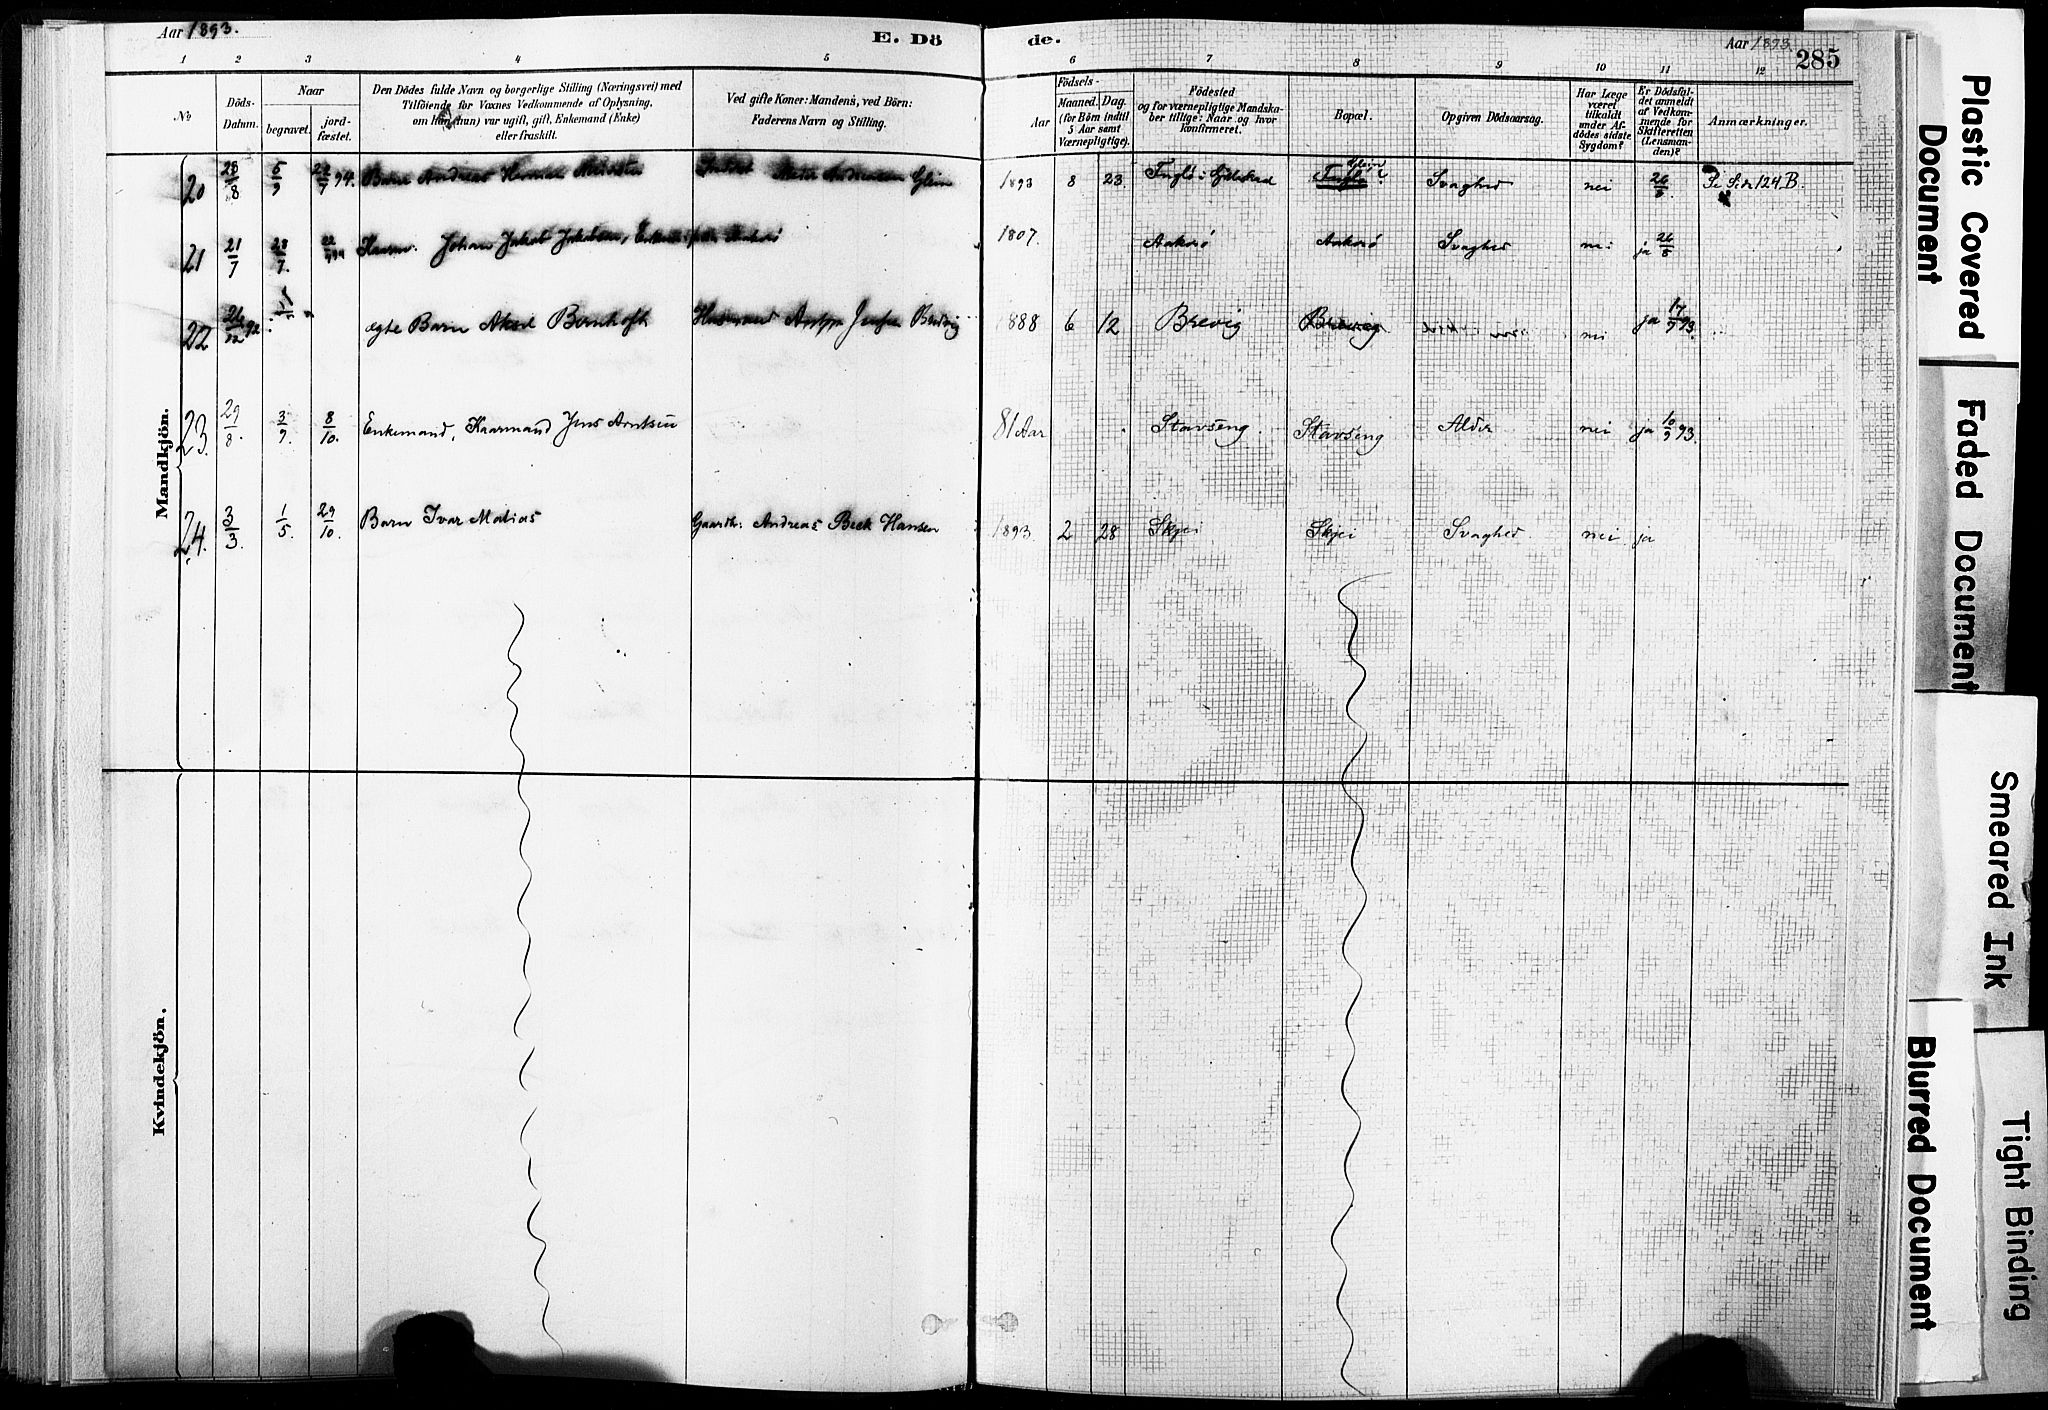 Aar 1893.
E. Dö
de.
Aar 1893.
285
1 2 3 4 5 6 7 8 9 10 11 12
№
Döds-Datum.
Naar
begravet.
jord-fæstet.
Den Dödes fulde Navn og borgerlige Stilling (Næringsvei) med
Tilföiende for Vaxnes Vedkommende af Oplysning,
om han (hun) var ugift, gift, Enkemand (Enke)
eller fraskilt.
Ved gifte Koner: Mandens, ved Börn:
Faderens Navn og Stilling.
Födsels-
Aar
Maaned.
Dag.
(for Börn indtil
5 Aar samt
Værnepligtige).
Födested
og for værnepligtige Mandska-
ber tillige: Naar og hvor
konfirmeret.
Bopæl.
Opgiven Dödsaarsag.
Har Læge
været
tilkaldt
under Af-
dödes sidste
Sygdom?
Er Dödsfal-
det anmeldt
af Vedkom-
mende for
Skifteretten
(Lensman-
den)?
Anmærkninger.
Mandkjön.
20 28/8 5/9 22/7 94. Barn Andreas Glein 1893 8 23. Svaghed nei 26/8. Se Side 124 B.
21 21/7 28/7. Kaarm. Johan Jakob Jakobsen, 1807. Svaghed nei ja 26/8
22 92 ægte Barn Aksel Husmand Jensen 1888 6 12 Brevig Brevig nei ja 17/9 93.
23. 29/8. 3/9. 8/10. Enkemand, Kaarmand Jens Arntsen 81 Aar Stavseng. Stavseng Alder nei ja 10/9 93.
24. 3/3. 1/5. 29/10. Barn Ivar Matias Gaardb: Andreas Beck Hansen 1893. 2 28 Skjei Skjei Svaghed. nei ja
Kvindekjön.
Plastic Covered
Document
Faded Document
Smeared Ink
Blurred Document
Tight Binding